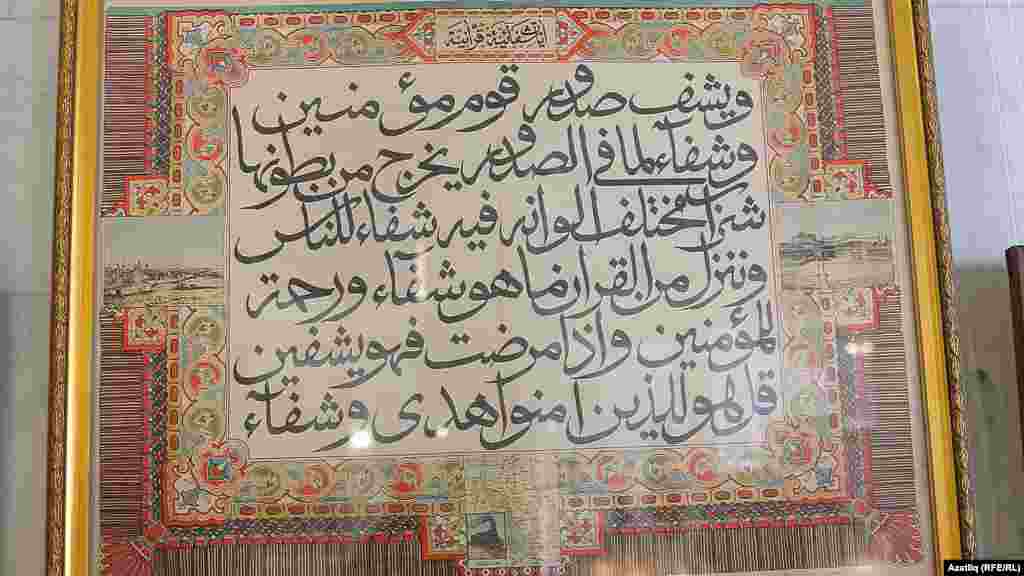 آيات شفائيه قرآنيه
ويشف صدور قوم مؤمنين
وشفاء لما في الصدور يخرج من بطونها
شراب مختلف الوانه فيه شفاء للناس
وننزل من القران ما هو شفاء ورحمة
للمؤمنين واذا مرضت فهو يشفين
قل هو للذين امنوا هدى وشفاء
Azatliq (RFE/RL)